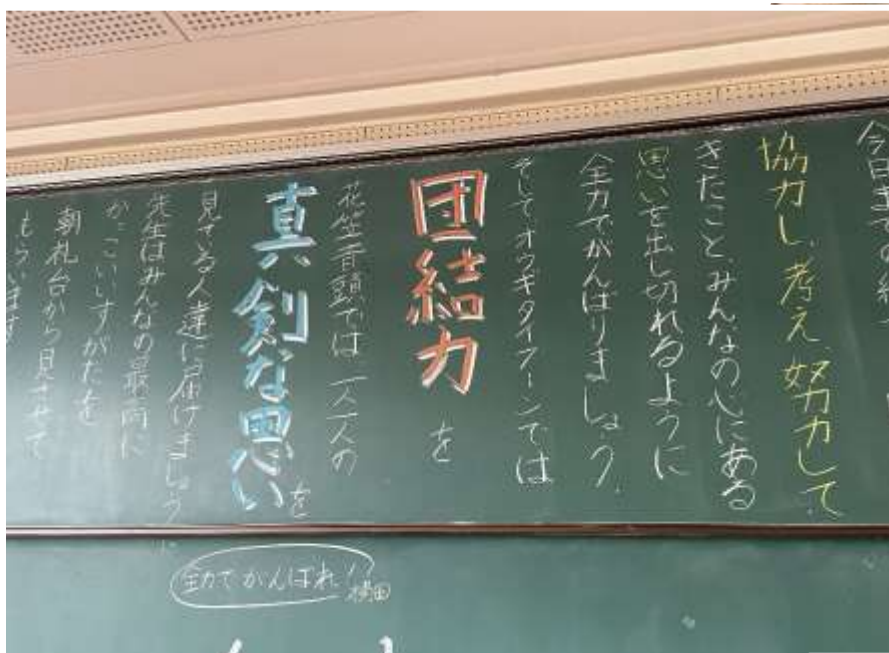 今日までの練
協力し、考え、努力して
きたこと、みんなの心にある
思いを出し切れるように
全力でがんばりましょう。
そしてオウギタイフーンでは
団結力を
花笠音頭では一人一人の
真剣な思いを
見ている人達に届けましょう。
先生はみんなの最高に
かっこいいすがたを
朝礼台から見させて
もらいます
全力でがんばれ!!
横田